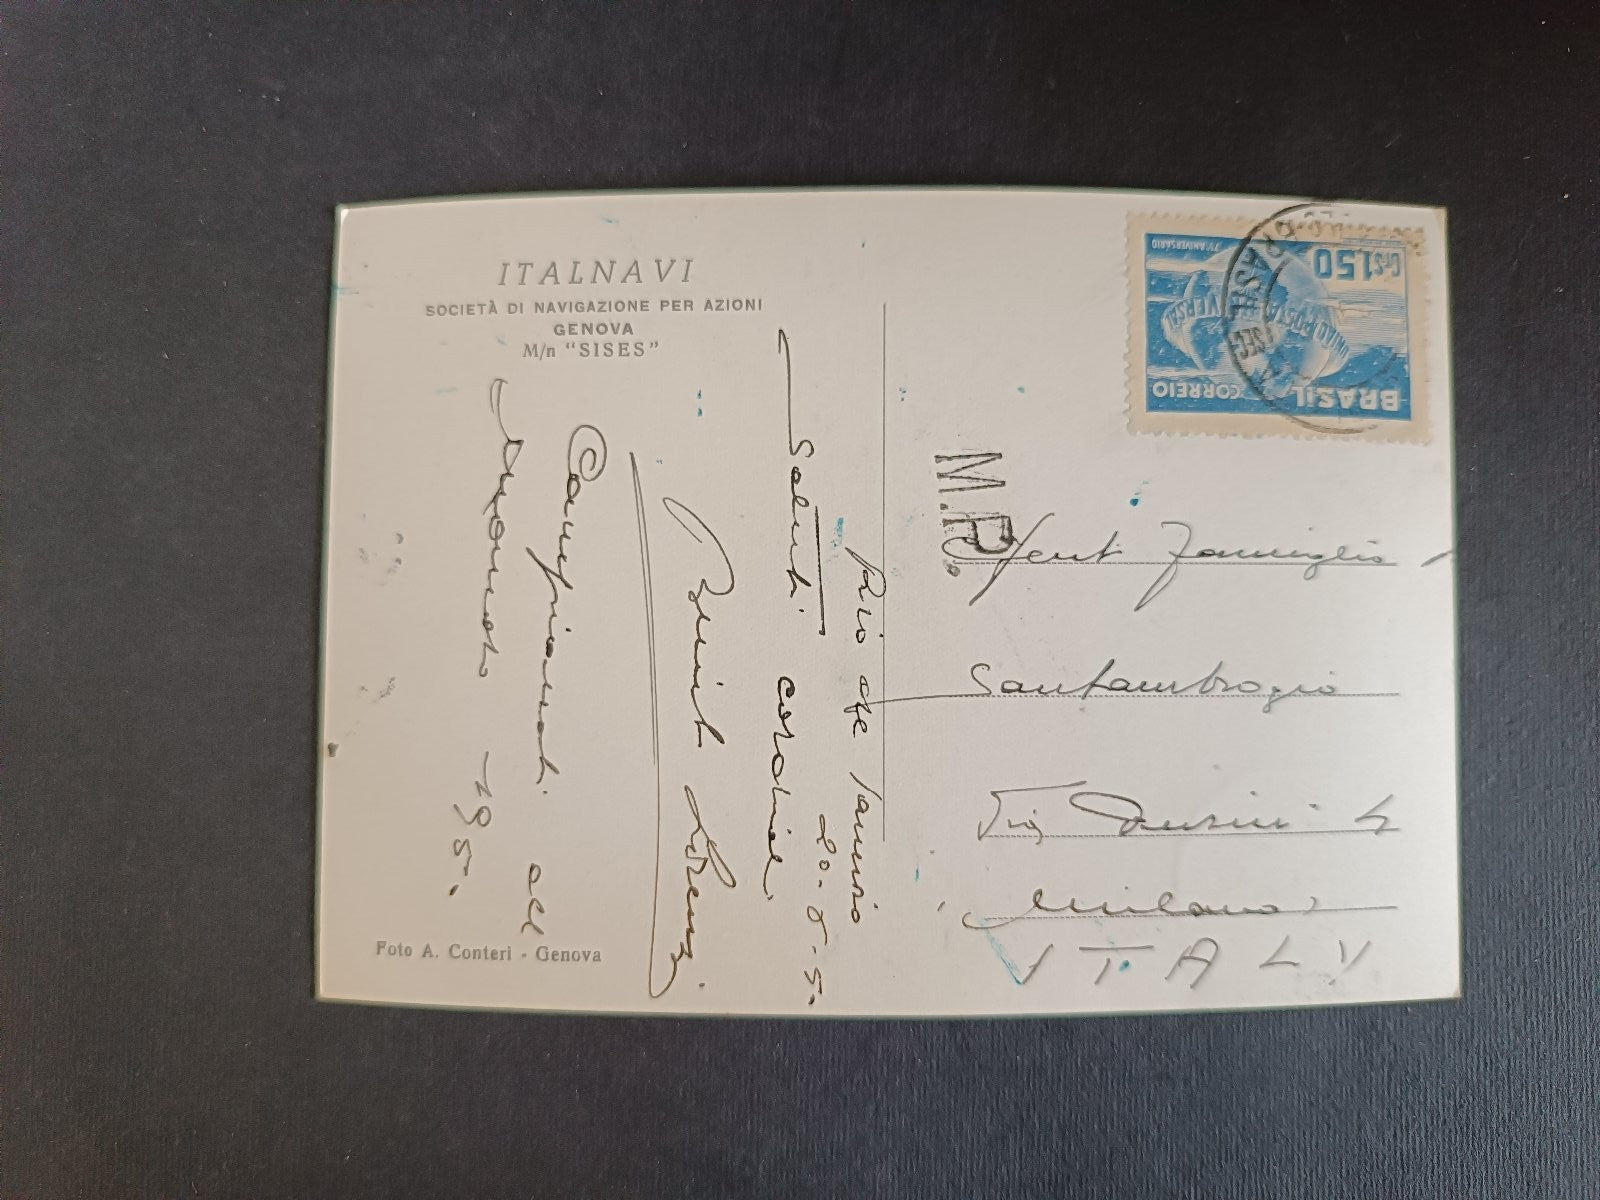 ITALNAVI
SOCIETÀ DI NAVIGAZIONE PER AZIONI
GENOVA
M/n "SISES"
Rio de Janeiro
20-5-5.
Saluti cordiali
Lorenzi
Campionati del
Mondo 195.
Foto A. Conteri - Genova
75º ANIVERSÁRIO
Cr$1,50
UNIÃO POSTAL UNIVERSAL
BRASIL CORREIO
BRASIL
M.P.
Gent Famiglia
Santambrogio
Via 4
Milano
ITALY